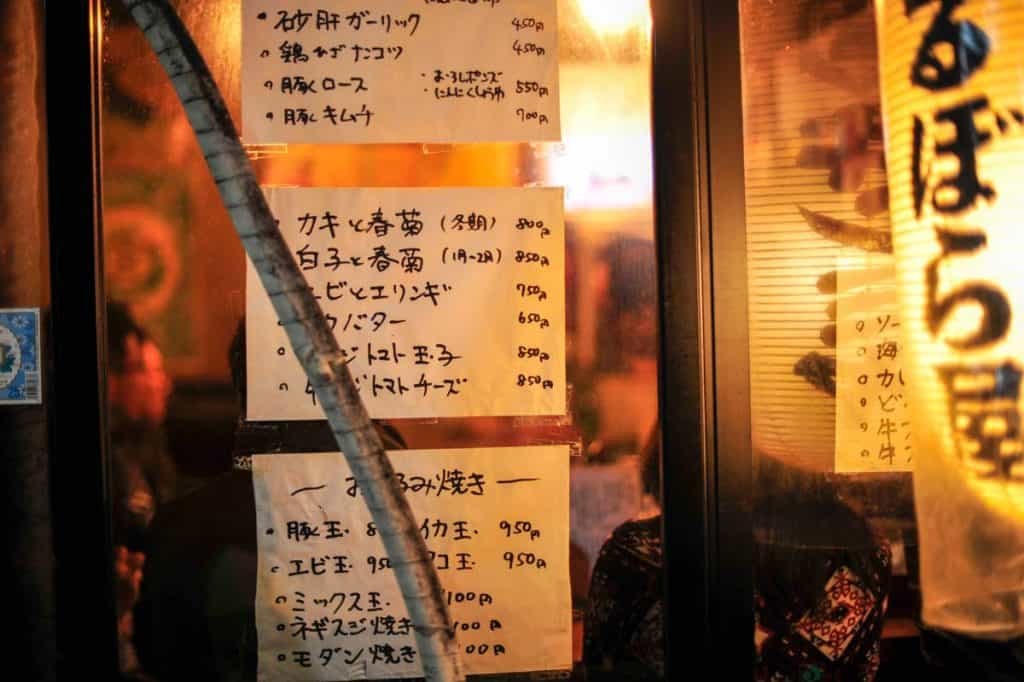 砂肝ガーリック 450円
鶏ひざナンコツ 450円
豚ロース ・おろしポンズ ・にんにくしょうゆ 550円
豚キムチ 700円
カキと春菊(冬期) 800円
白子と春菊(1月~2月) 850円
エビとエリンギ 750円
バター 650円
トマト玉子 850円
トマトチーズ 850円
焼き
豚玉. イカ玉. 950円
エビ玉. 玉. 950円
ミックス玉. 100円
ネギスジ焼き 100円
モダン焼き 100円
ソー
海
カ
ど
牛
牛
るぼら